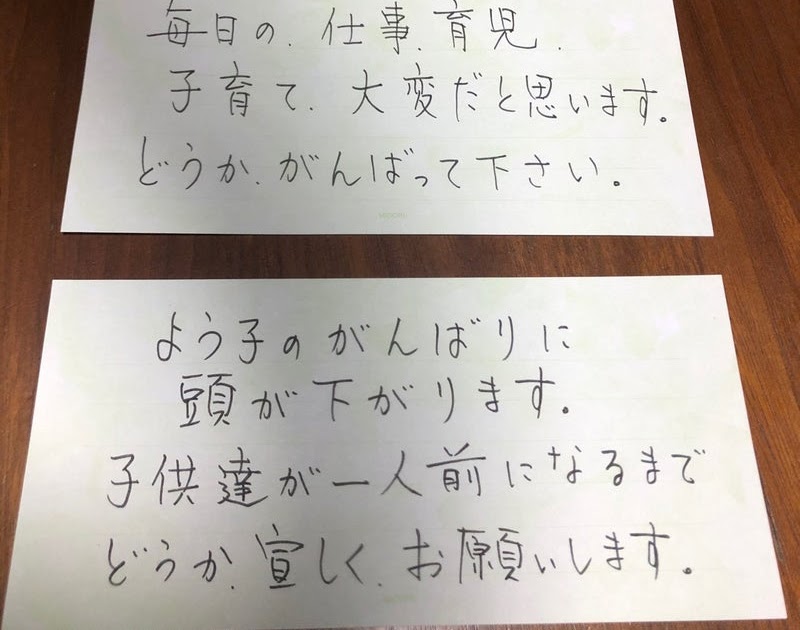 毎日の、仕事、育児、
子育て、大変だと思います。
どうか、がんばって下さい。
MIDORI
よう子のがんばりに
頭が下がります。
子供達が一人前になるまで
どうか、宜しく、お願いします。